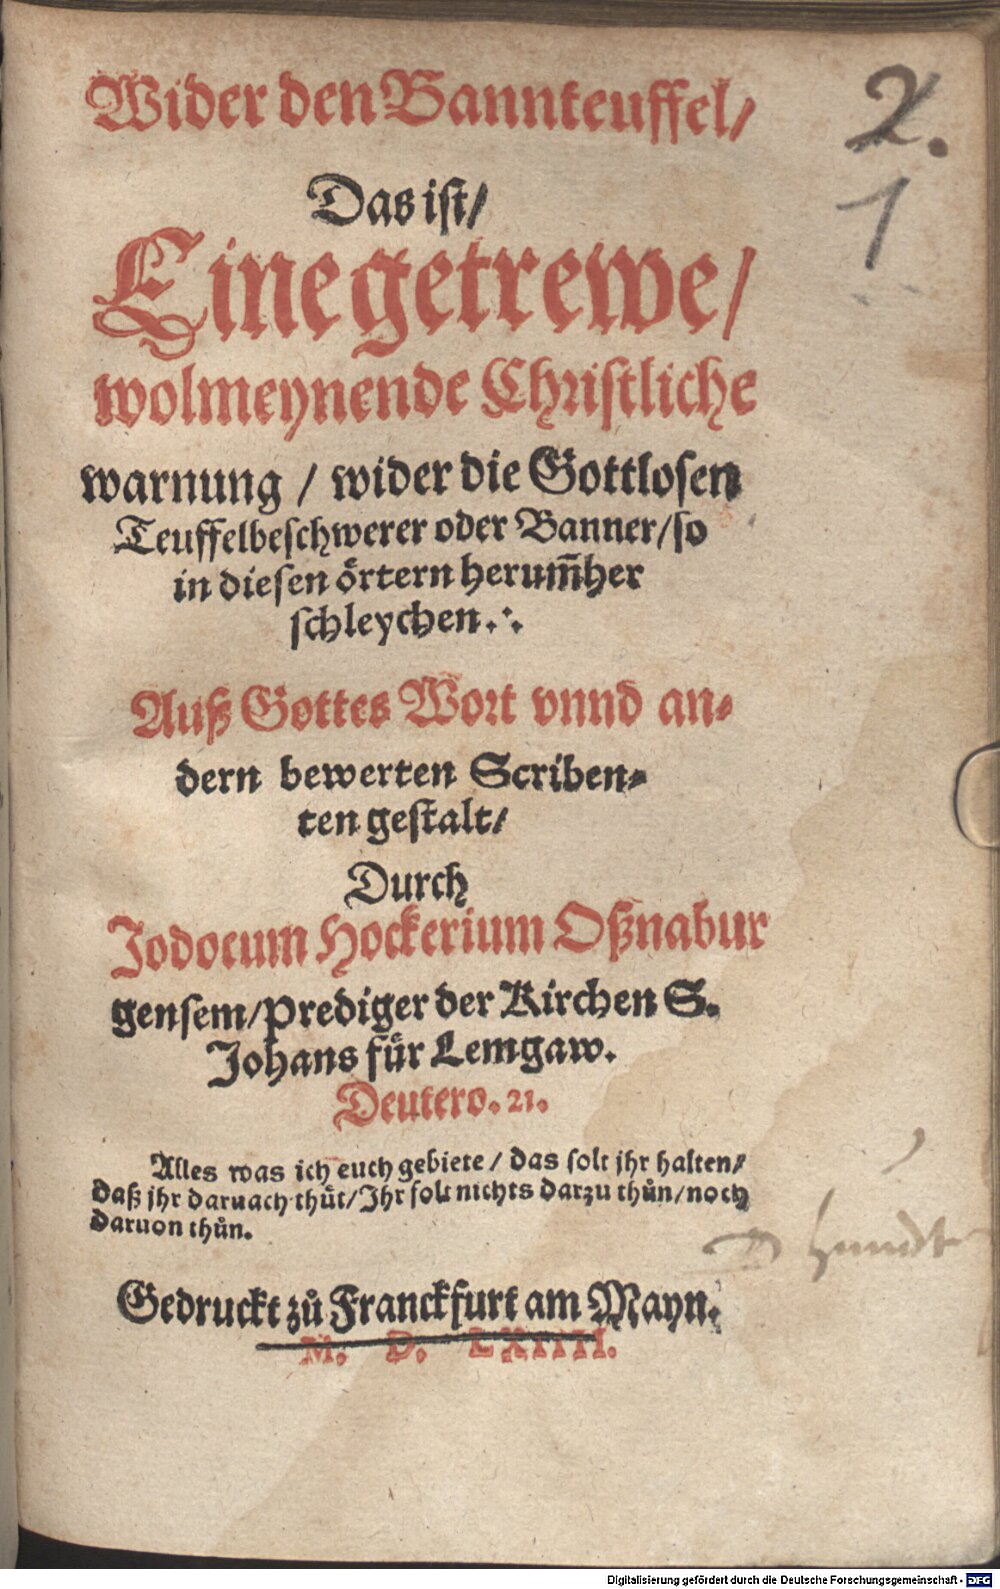 Wider den Bannteuffel/
2.
Das ist/
1
Eine getrewe/
wolmeynende Christliche
warnung / wider die Gottlosen
Teuffelbeschwerer oder Banner/so
in diesen oͤrtern herum̃her
schleychen.∴
Auß Gottes Wort vnnd an⸗
dern bewerten Scriben⸗
ten gestalt/
Durch
Jodocum Hockerium Oßnabur
gensem/Prediger der Kirchen S.
Johans fuͤr Lemgaw.
Deutero. 21.
Alles was ich euch gebiete / das solt jhr halten/
daß jhr darnach thuͤt/Jhr solt nichts darzu thuͤn/noch
daruon thuͤn.
Gedruckt zuͦ Franckfurt am Mayn.
M. D. LXIIII.
Digitalisierung gefördert durch die Deutsche Forschungsgemeinschaft - DFG